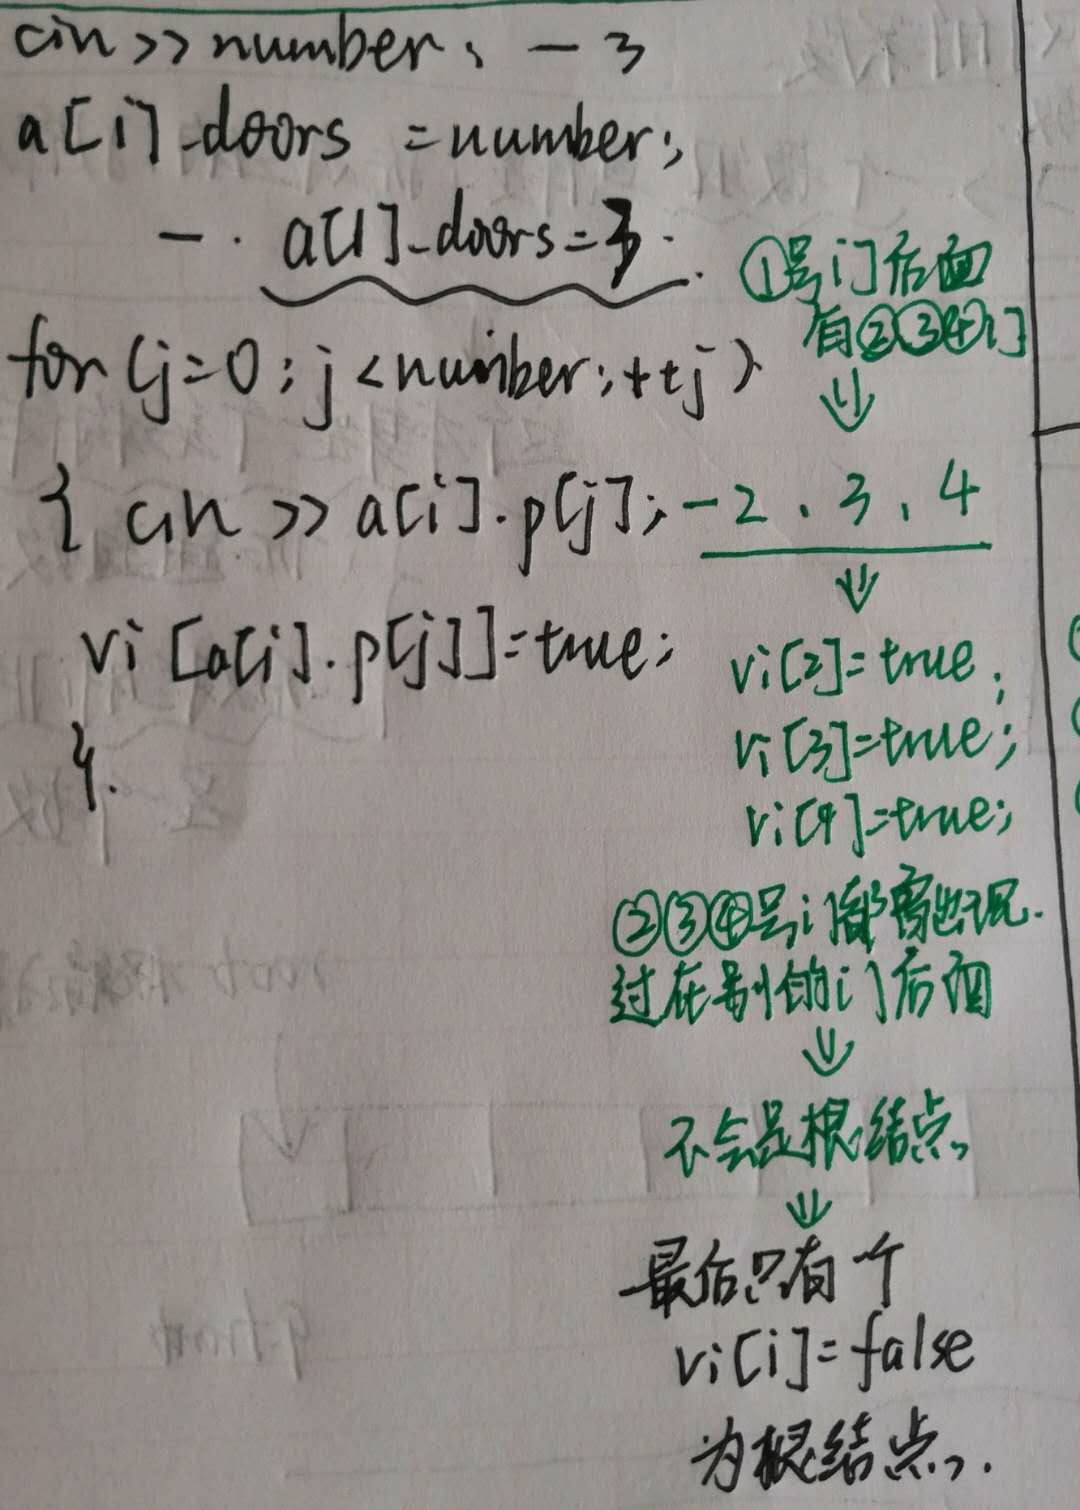 cin >> number; — 3
a[i].doors = number;
— . a[1].doors = 3.
①号门后面
有②③④门
for (j=0; j<number; ++j)
{ cin >> a[i].p[j]; — 2、3、4
vi[a[i].p[j]]=true;
vi[2]=true;
}.
vi[3]=true;
vi[4]=true;
②③④号门都出现.
过在别的门后面
不会是根结点,
最后只有一个
vi[i]=false
为根结点,.